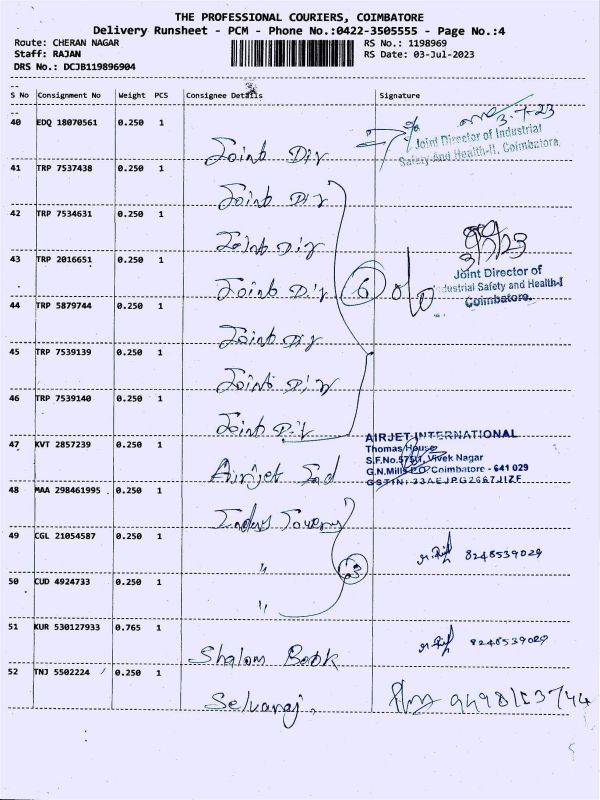 THE PROFESSIONAL COURIERS, COIMBATORE
Delivery Runsheet - PCM - Phone No.:0422-3505555 - Page No.:4
Route: CHERAN NAGAR RS No.: 1198969
Staff: RAJAN RS Date: 03-Jul-2023
DRS No.: DCJB119896904
S No Consignment No Weight PCS Consignee Details Signature
40 EDQ 18070561 0.250 1
3-7-23
Joint Director of Industrial
Safety And Health-II, Coimbatore.
Joint Dir
41 TRP 7537438 0.250 1
Joint Dir
42 TRP 7534631 0.250 1
Joint Dir
43 TRP 2016651 0.250 1
3/7/23
Joint Director of
Industrial Safety and Health-I
Coimbatore.
Joint Dir 6
44 TRP 5879744 0.250 1
Joint Dir
45 TRP 7539139 0.250 1
Joint Dir
46 TRP 7539140 0.250 1
Joint Dir
47 KVT 2857239 0.250 1
AIRJET INTERNATIONAL
Thomas House
S.F.No.575/1, Vivek Nagar
G.N.Mills P.O. Coimbatore - 641 029
GSTIN: 33AEJPG2667J1ZF
Airjet Ind
48 MAA 298461995 0.250 1
Indus Towers
49 CGL 21054587 0.250 1
8248539029
"
03
50 CUD 4924733 0.250 1
"
51 KUR 530127933 0.765 1
8248539029
Shalom Book
52 TNJ 5502224 / 0.250 1
Selvaraj.